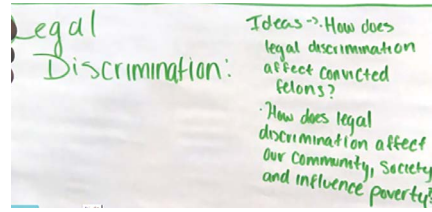 Legal
Discrimination:
Ideas -> How does
legal discrimination
affect convicted
felons?
· How does legal
discrimination affect
our community, society
and influence poverty?